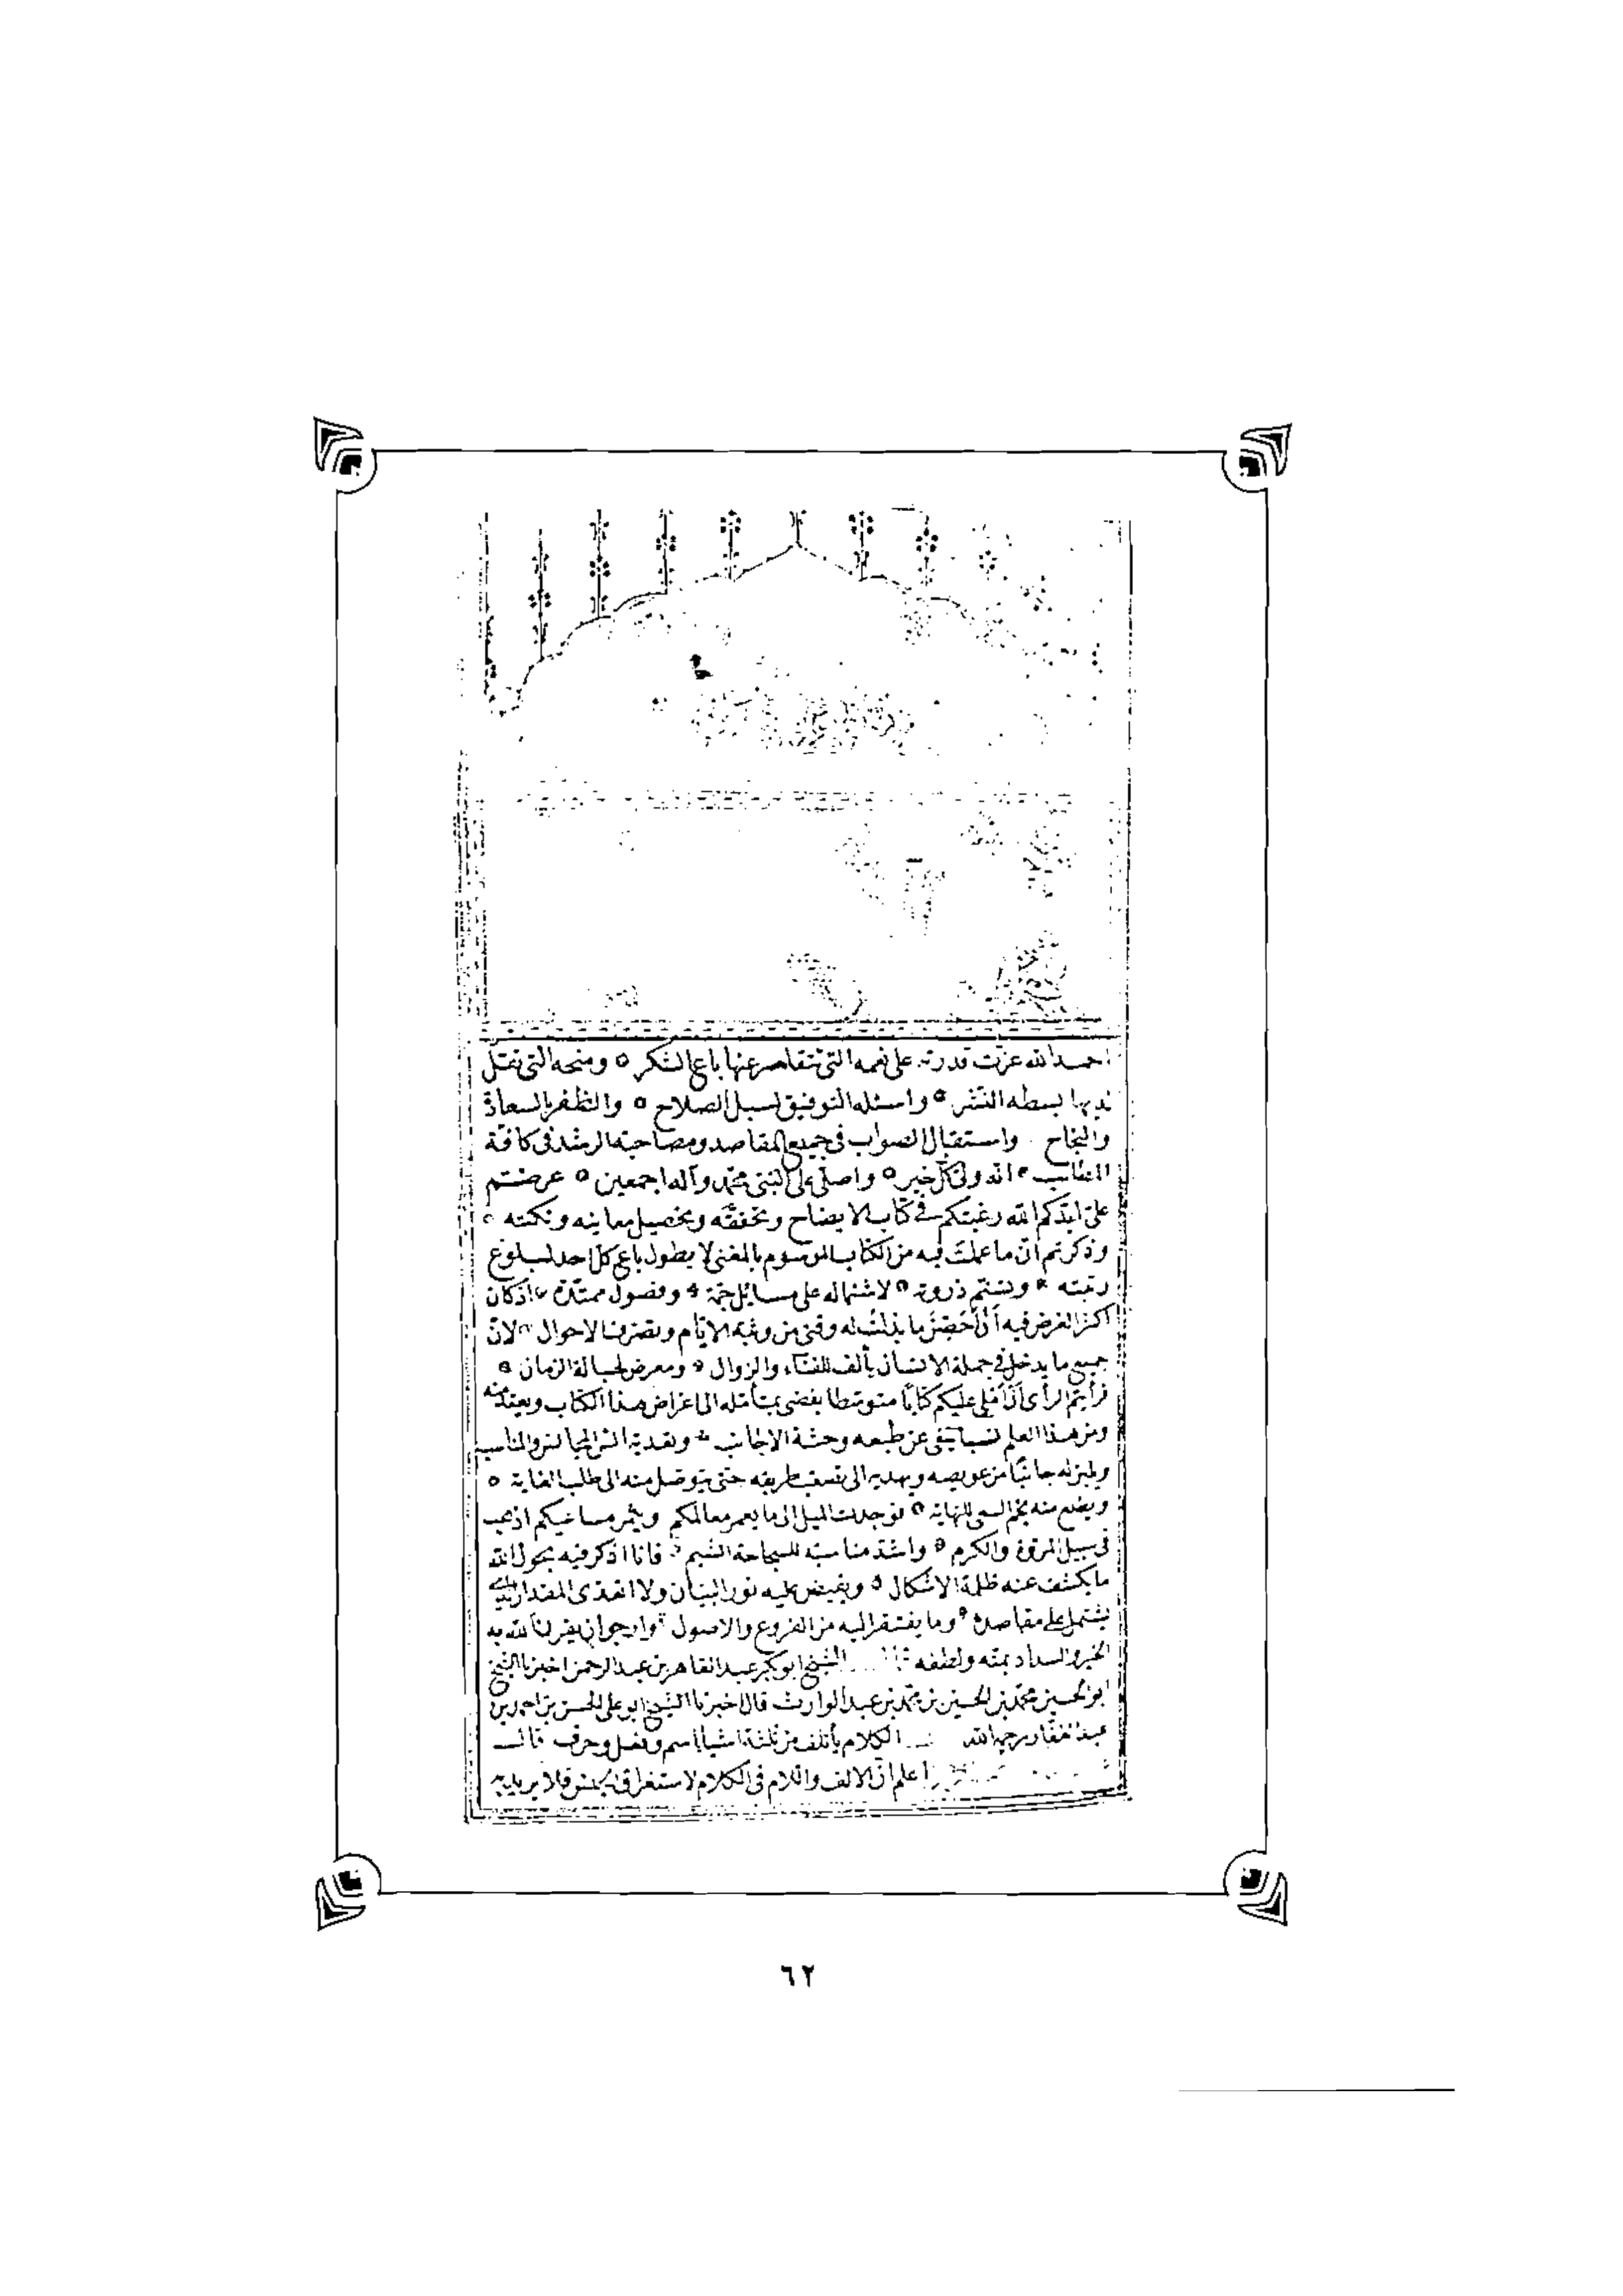 احمد الله عزت قدرته على نعمه التى يتقاصر عنها باع الشكر ٥ ومنحه التى تقل
لديها بسطه النشر ٥ واسئله التوفيق لسبل الصلاح ٥ والظفر بالسعادة
والنجاح واستقبال الصواب فى جميع المقاصد ومصاحبة الرشد فى كافة
المطالب انه ولى كل خير ٥ واصلى على النبى محمد وآله اجمعين ٥ عرضتم
على ايدكم الله رغبتكم فى كتاب الايضاح وتحفظه وتحصيل معانيه ونكته ٥
وذكرتم ان ما عملت فيه من الكتاب الموسوم بالمغنى لا يطول باع كل احد لبلوغ
رتبته وتسنم ذروته لاشتماله على مسائل جمة وفصول ممتدة اذ كان
اكثر الغرض فيه أن أحصن ما بذلت له وقتى من وثبة الايام وتصرف الاحوال لان
جميع ما يدخل فى جملة الانسان يألف للفناء والزوال ومعرض لحبالة الزمان ٥
فرأيتم الرأى أن أملى عليكم كتابا متوسطا يفضى بمتأمله الى اغراض هذا الكتاب ويعقد منه
ومن هذا العلم نسبا ينفى عن طبعه وحشة الاجانب وانس المجالس والمناسب
ويلين له جانبا من عويصه ويهديه الى طريقه حتى يتوصل منه الى طلب الغاية ٥
ويضع منه السعى للنهاية ٥ فوجدت الميل الى ما يعمر معالمكم ويثمر مساعيكم اذهب
فى سبيل المروة والكرم ٥ واشد مناسبة لسجاحة الشيم فانا اذكر فيه بحول الله
ما يكشف عنه ظلمة الاشكال ٥ ويفيض عليه نور البيان ولا اتعدى المقدار الذى
يشتمل على مقاصده وما يفتقر اليه من الفروع والاصول وارجو ان يقرن الله به
الخير والسداد بمنه ولطفه قال الشيخ ابو بكر عبد القاهر بن عبد الرحمن اخبرنا الشيخ
ابو الحسين محمد بن الحسين بن محمد بن عبد الوارث قال اخبرنا الشيخ ابو على الحسن بن احمد بن
عبد الغفار رحمه الله الكلام يأتلف من ثلثة اشيا اسم وفعل وحرف قال
اعلم ان الالف واللام فى الكلام لاستغراق الجنس فلا يريد به
٦٢